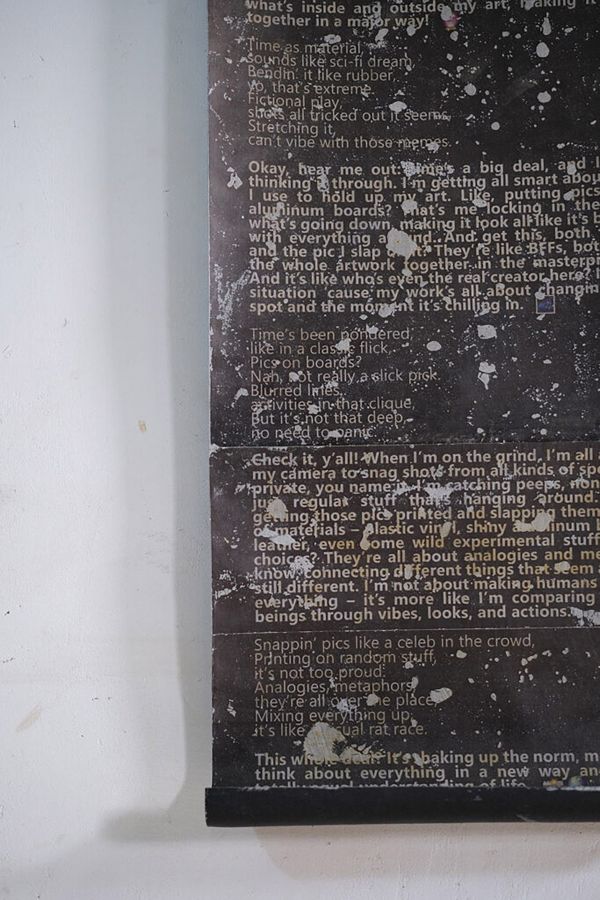 what's inside and outside my art, making it
together in a major way!
Time as material,
sounds like sci-fi dream,
Bendin' it like rubber,
yo, that's extreme.
Fictional play,
shots all tricked out it seems,
Stretching it,
can't vibe with those memes.
Okay, hear me out: time's a big deal, and I
thinking it through. I'm getting all smart abou
I use to hold up my art. Like putting pics
aluminum boards? That's me locking in the
what's going down making it look all like it's b
with everything around. And get this, both
and the pic I slap on it? They're like BFFs, bot
the whole artwork together in the masterpi
And it's like who's even the real creator here? I
situation 'cause my work's all about changin
spot and the moment it's chilling in.
Time's been pondered,
like in a classic flick,
Pics on boards?
Nah, not really a slick pick.
Blurred lines,
activities in that clique,
But it's not that deep,
no need to panic.
Check it, y'all! When I'm on the grind, I'm all a
my camera to snag shots from all kinds of spo
private, you name it. I'm catching peeps, non
just regular stuff that's hanging around.
getting those pics printed and slapping them
of materials – plastic vinyl, shiny aluminum b
leather, even some wild experimental stuff
choices? They're all about analogies and me
know, connecting different things that seem a
still different. I'm not about making humans
everything – it's more like I'm comparing
beings through vibes, looks, and actions.
Snappin' pics like a celeb in the crowd,
Printing on random stuff,
it's not too proud.
Analogies, metaphors,
they're all over the place,
Mixing everything up,
it's like a visual rat race.
This whole deal? It's shaking up the norm, m
think about everything in a new way an
totally equal understanding of life.